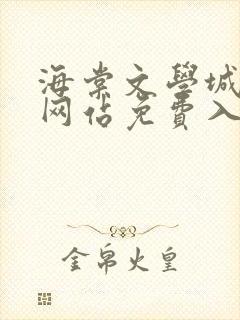 海棠文學城
网佔免費入
金帛火皇